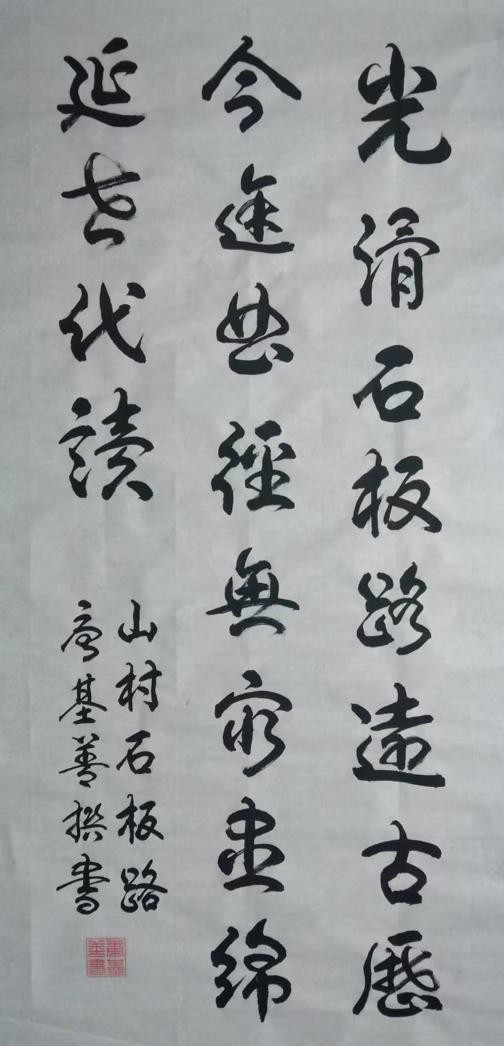 光滑石板路遠古歷
今途曲徑無窮盡綿
延世代讀
山村石板路
唐基善撰書